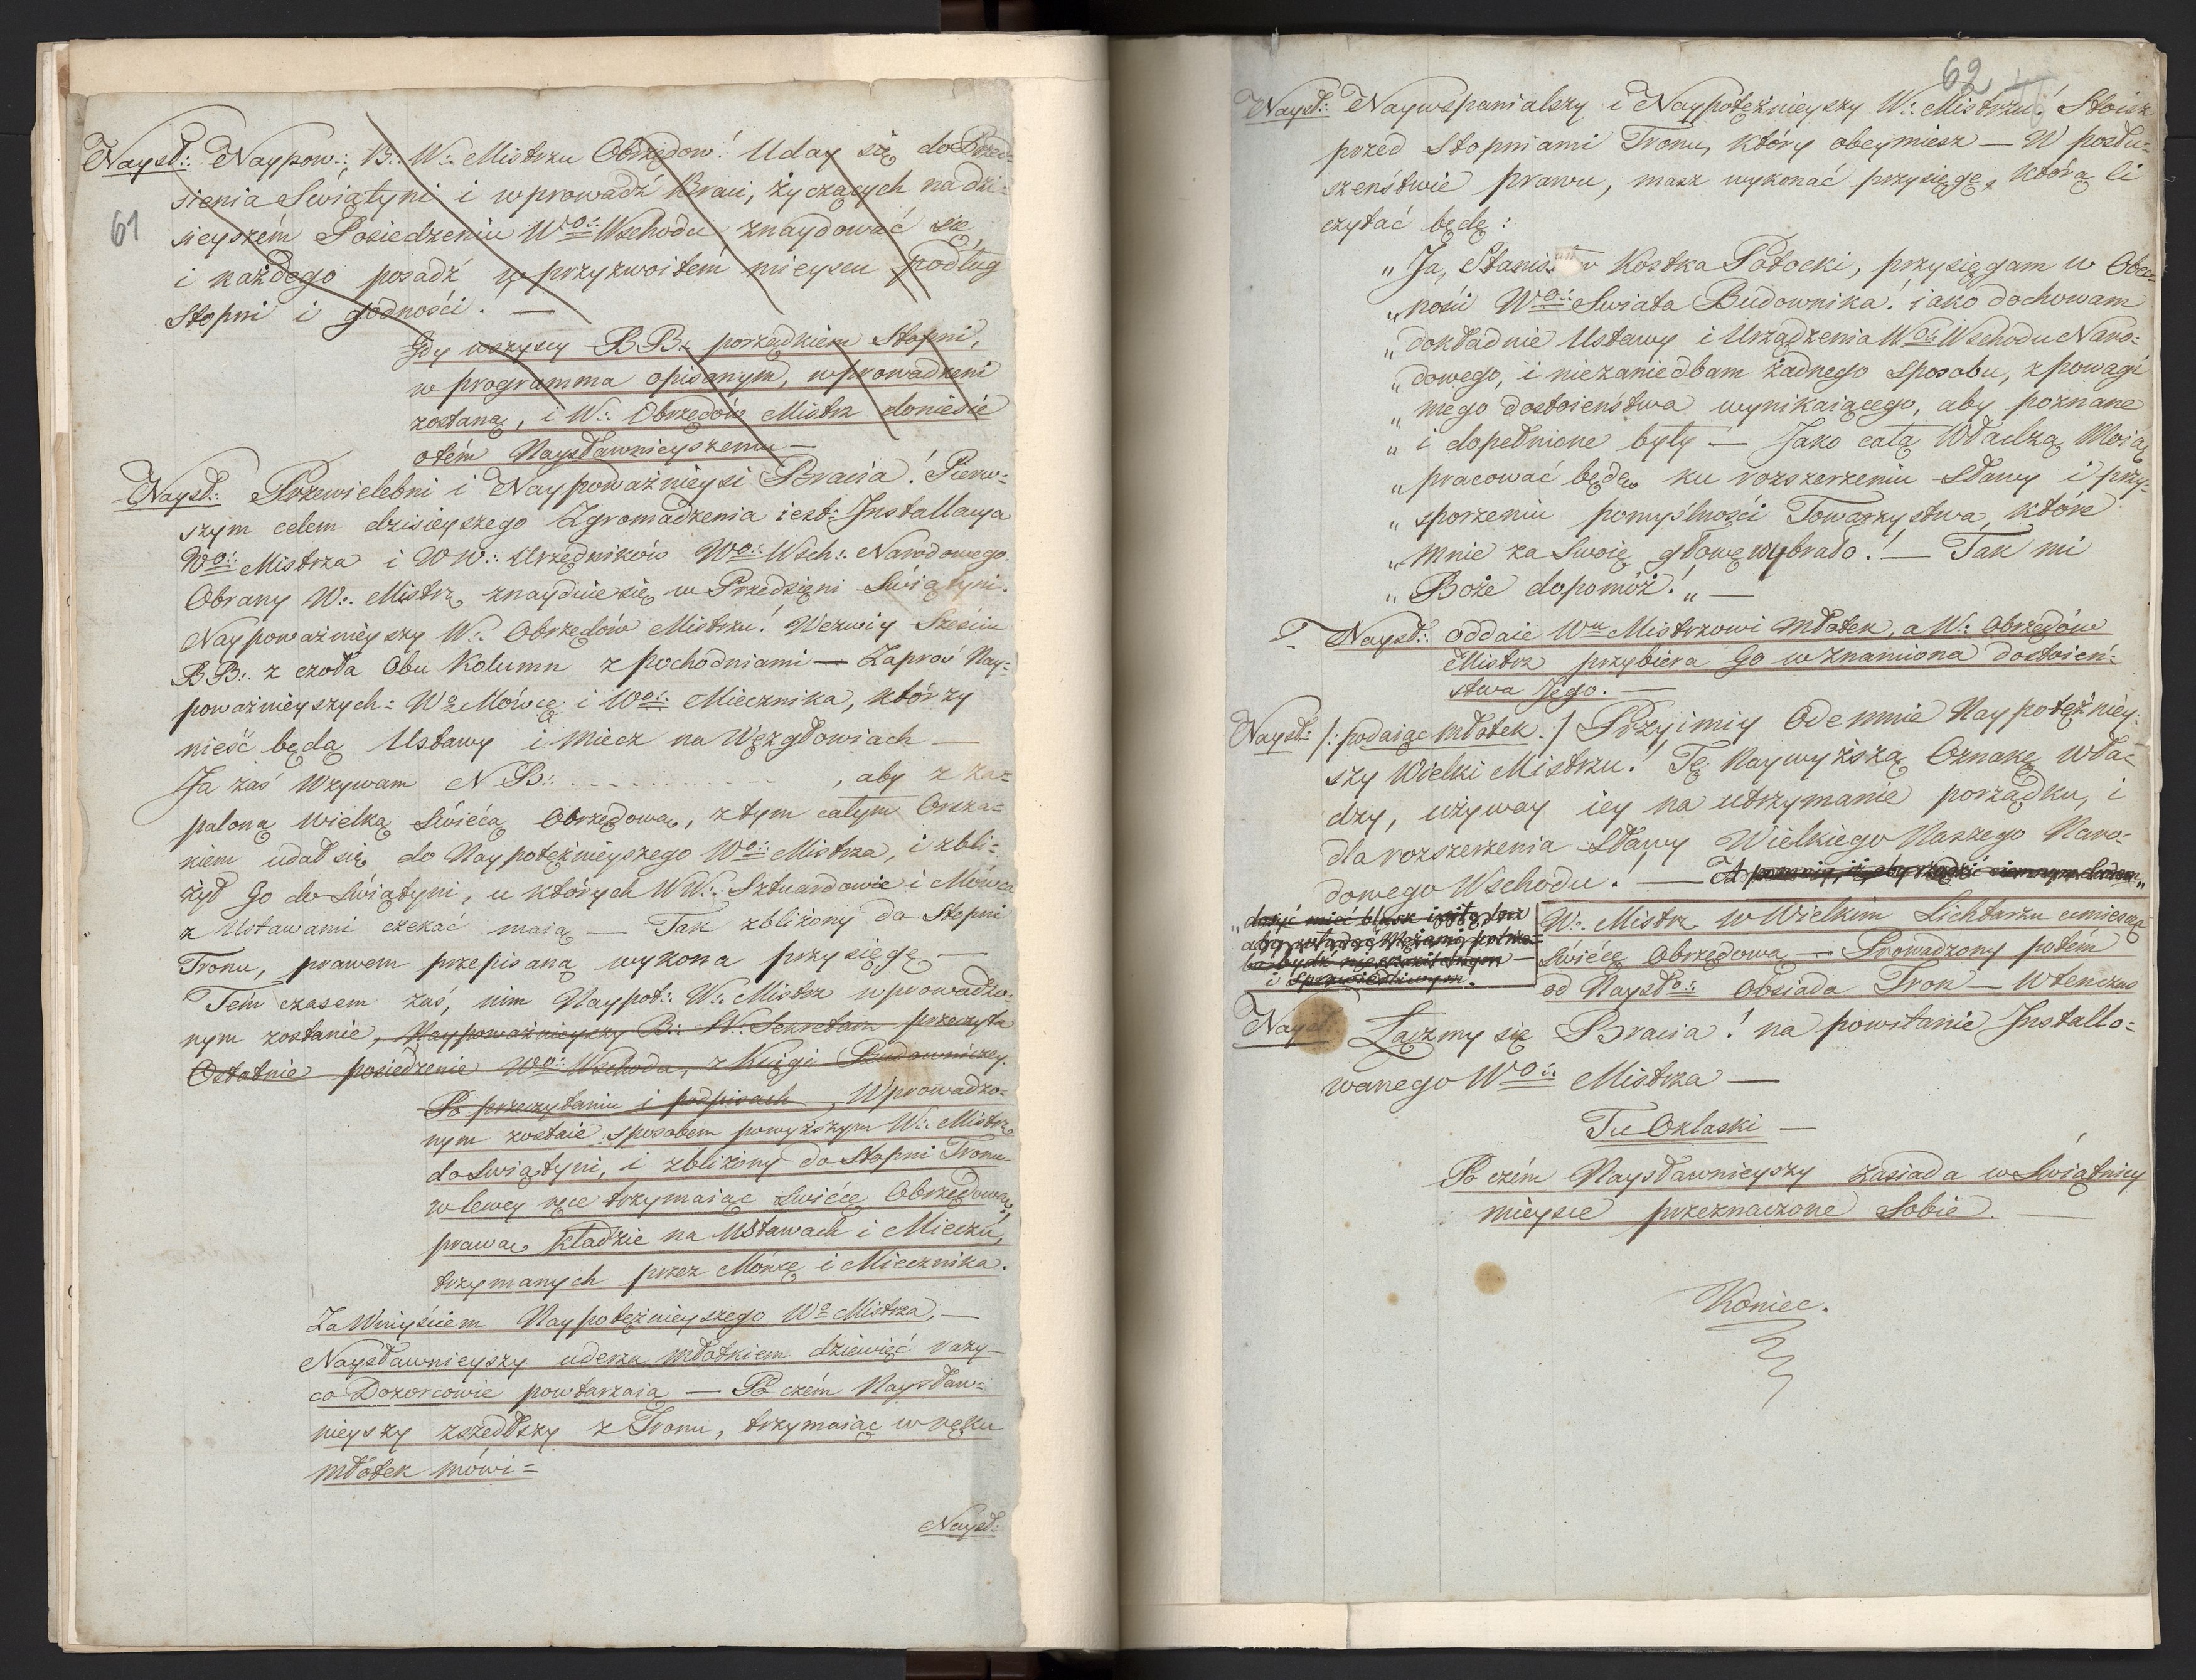 Naysł:. Naypow:. B:. W:. Mistrzu Obrzędow! Uday się do Przed-
sienia Swiątyni i wprowadź Braci, życzących na dzi-
sieyszém Posiedzeniu Wo:. Wschodu, znaydować się,
61
i każdego posadź w przyzwoitém mieyscu podług
Stopni i godności. —
Gdy wszyscy BB:. porządkiem Stopni,
w programma opisanym, wprowadzeni
zostaną, i W:. Obrzędów Mistrz doniesie
otém Naysławnieyszemu —
Naysł:. Przewielebni i Naypoważnieysi Bracia! Pierw-
szym celem dzisieyszego Zgromadzenia iest: Installacya
Wo:. Mistrza i WW:. Urzędników Wo:. Wsch:. Narodowego.
Obrany W:. Mistrz znayduie się w Przedsięni Swiątyni.
Naypoważnieyszy W:. Obrzędów Mistrzu! Wezwiy Sześciu
BB:. z czoła Obu Kolumn z pochodniami — Zaproś Nay-
poważnieyszych: Wo Mówcę i Wo:. Miecznika, którzy
nieść będą Ustawy i Miecz na Węzgłowiach —
Ja zaś Wzywam N B:. . . . . . . . . . . , aby z za-
paloną Wielką Swiécą Obrzędową, z tym całym Orsza-
kiem udał się do Naypotężnieyszego Wo:. Mistrza, i zbli-
żył Go do Swiątyni, u których WW:. Sztuardowie i Mówca
z Ustawami czekać maią — Tak zbliżony do Stopni
Tronu, prawem przepisaną wykona przysięgę —
Tém czasem zaś, nim Naypot:. W:. Mistrz wprowadzo-
nym zostanie, Naypoważnieyszy B:. W:. Sekretarz przeczyta
Ostatnie posiedzenie Wo:. Wschodu, z Księgi Budowniczey.
Po przeczytaniu i podpisach, Wprowadzo-
nym zostaie sposobem powyższym W:. Mistrz
do Swiątyni, i zbliżony do Stopni Tronu
w lewey ręce trzymaiąc Swiécę Obrzędową,
prawą kładzie na Ustawach i Mieczu,
trzymanych przez Mówcę i Miecznika.
Za Wniyściem Naypotężnieyszego Wo Mistrza, —
Naysławnieyszy uderza młotkiem dziewięć razy —
co Dozorcowie powtarzaią — Po czém Naysław-
nieyszy zszedłszy z Tronu, trzymaiąc w ręku
Młotek mówi =
Naysł:.
62
Naysł:. Naywspanialszy i Naypotężnieyszy W:. Mistrzu! Stoisz
przed Stopniami Tronu, który obeymiesz — W posłu-
szeństwie prawu, masz wykonać przysięgę, którą Ci
czytać będę:
„Ja, Stanisław Kostka Potocki, przysięgam w Obec-
„ności Wo:. Swiata Budownika! iako dochowam
„dokładnie Ustawy i Urządzenia Wo:. Wschodu Naro-
„dowego, i niezaniedbam żadnego sposobu, z powagi
„mego dostoieństwa wynikaiącego, aby poznane
„i dopełnione były — Jako całą Władzą Moią
„pracować będę, ku rozszerzeniu Sławy i przy-
„sporzeniu pomyślności Towarzystwa, które
„mnie za Swoię głowę wybrało! — Tak mi
„Boże dopomóż!„ —
Naysł:. oddaie Wu Mistrzowi Młotek, a W:. Obrzędów
Mistrz przybiera Go w znamiona dostoień-
stwa Jego. —
Naysł:. /:podaiąc młotek./ Przyimiy Odemnie Naypotężniéy-
szy Wielki Mistrzu! Tę Naywyższą Oznakę Wła-
dzy, używay iey na utrzymanie porządku, i
dla rozszerzenia Sławy Wielkiego Naszego Naro-
dowego Wschodu! — A pomniy, iż, aby rządzić ciemnym ludem„
„dosyć mieć blask i siłę, lecz
aby władać Mężami, potrze-
ba bydź nieskazitelnym —
i Sprawiedliwym.
W:. Mistrz w Wielkim Lichtarzu umieszcza
Swiécę Obrzędową — Prowadzony potém
od Naysło:. Obsiada Tron — Wtenczas
Nayśł: Łączmy się Bracia! na powitanie Installo-
wanego Wo:. Mistrza —
Tu Oklaski —
Po czém Naysławnieyszy zasiada w Swiątnicy
mieysce przeznaczone Sobie. —
Koniec.